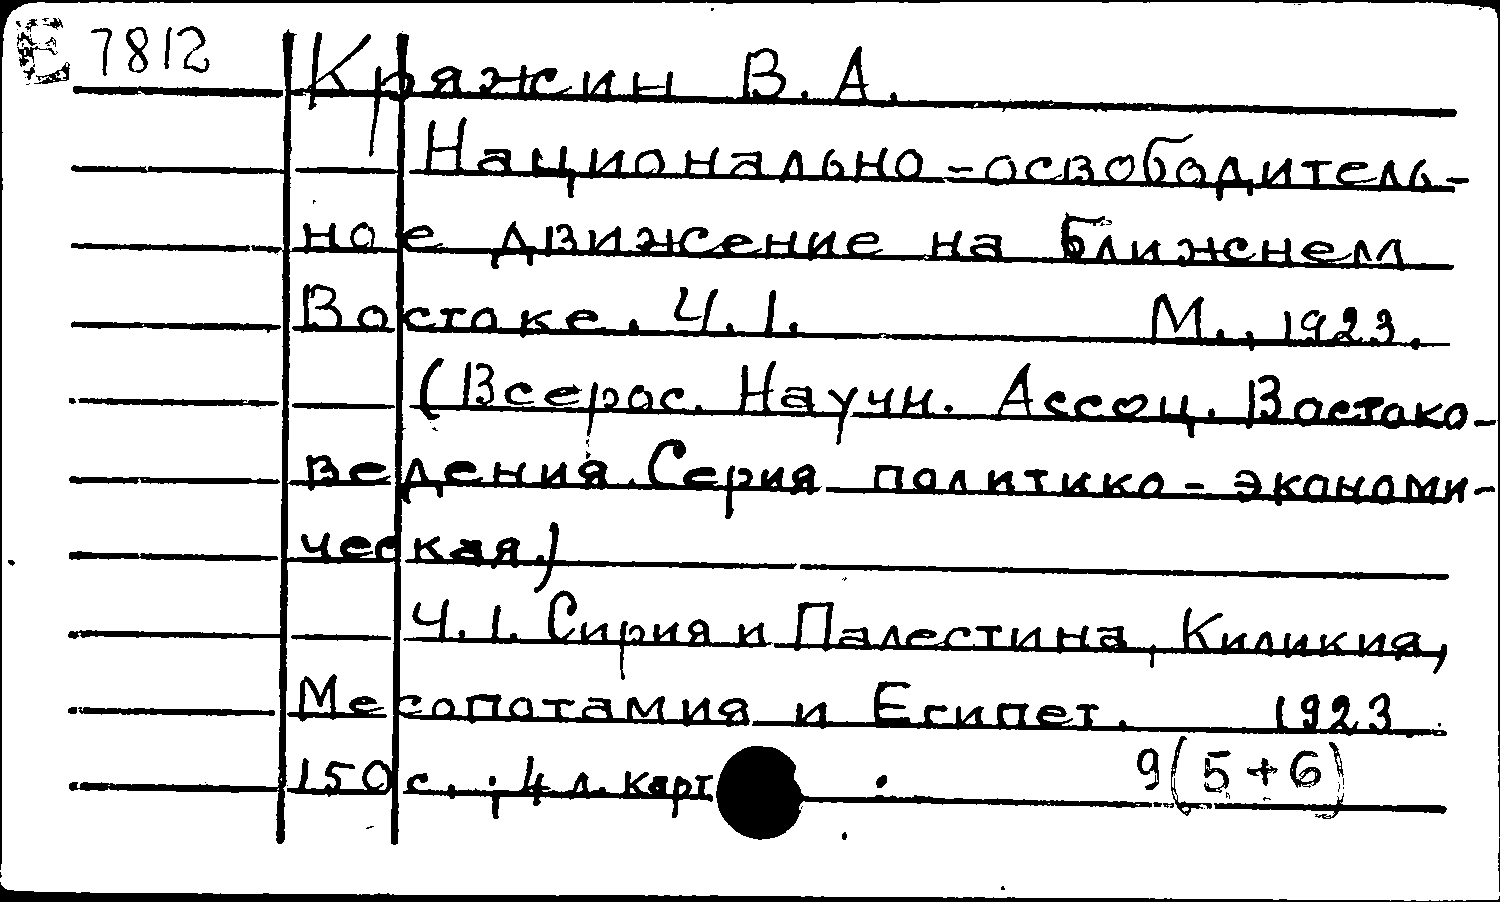 Е 7812
Кряжин В. А.
Национально-освободитель-
ное движение на Ближнем
Востоке. Ч. 1. М., 1923.
(Всерос. Научн. Ассоц. Востоко-
ведения. Серия политико-экономи-
ческая.)
Ч. 1. Сирия и Палестина, Киликия,
Месопотамия и Египет. 1923.
150 с.; 4 л. карт
9(5+6)